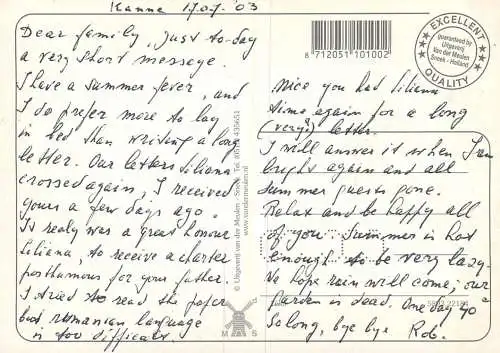 Kanne 17.07.'03
Dear family, Just to-day
a very short message.
I have a summer fever, and
I do prefer more to lay
in bed than writing a long
letter. Our letters Liliana
crossed again, I received
yours a few days ago.
Is realy was a great honour
Liliana, to receive a charter
posthumous for your father.
I tried to read the paper
but rumanian language
is too difficult.
© Uitgeverij van der Meulen - Sneek Tel. 435653
www.vandermeulen.nl
M S
8 712051 101002
EXCELLENT
guaranteed by
Uitgeverij
Van der Meulen
Sneek - Holland
QUALITY
Nice you had Liliana
time again for a long
(very) letter.
I will answer it when I am
bright again and all
summer guests gone.
Relax and be happy all
of you. Summer is hot
enough to be very lazy.
We hope rain will come; our
garden is dead. One day go
So long, bye bye Rob.